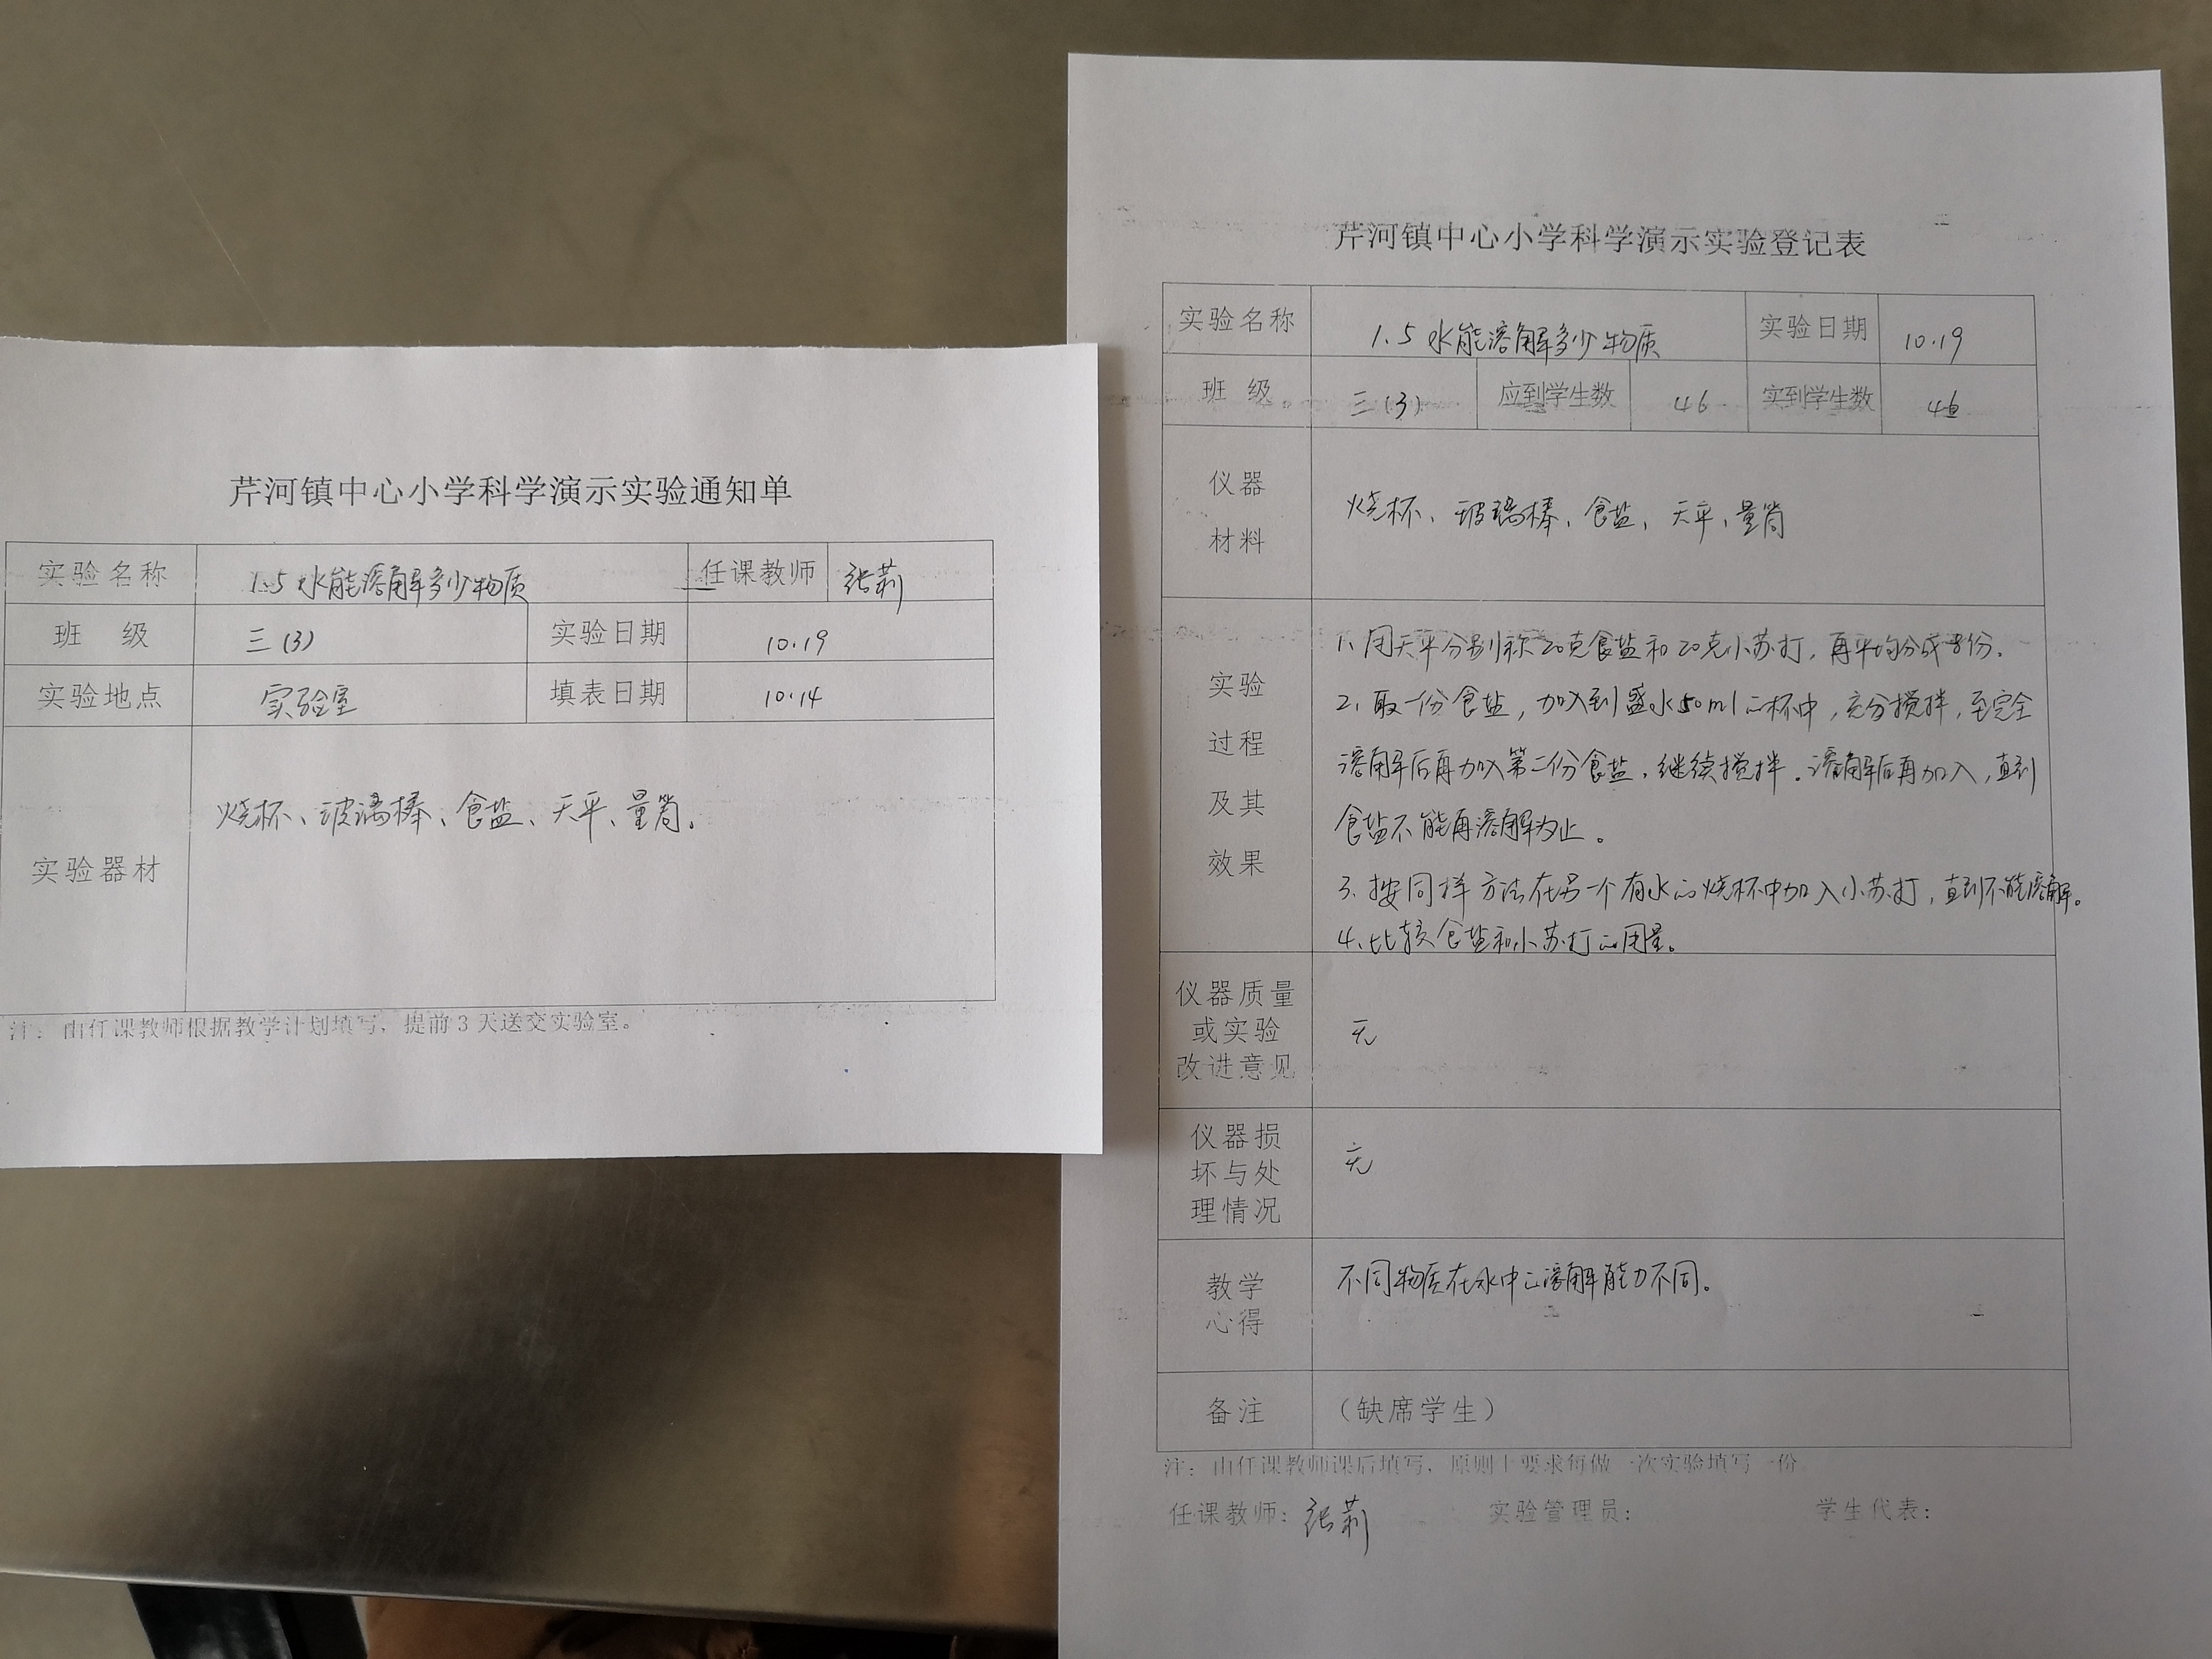 芹河镇中心小学科学演示实验通知单
实验名称 1.5 水能溶解多少物质 任课教师 张莉
班 级 三(3) 实验日期 10.19
实验地点 实验室 填表日期 10.14
实验器材 烧杯、玻璃棒、食盐、天平、量筒。
注：由任课教师根据教学计划填写，提前3天送交实验室。
芹河镇中心小学科学演示实验登记表
实验名称 1.5 水能溶解多少物质 实验日期 10.19
班 级 三(3) 应到学生数 46 实到学生数 46
仪器
材料
烧杯、玻璃棒、食盐、天平、量筒
实验
过程
及其
效果
1、用天平分别称20克食盐和20克小苏打，再平均分成8份。
2、取一份食盐，加入到盛水50ml的杯中，充分搅拌，至完全
溶解后再加入第二份食盐，继续搅拌。溶解后再加入，直到
食盐不能再溶解为止。
3、按同样方法在另一个有水的烧杯中加入小苏打，直到不能溶解。
4、比较食盐和小苏打的用量。
仪器质量
或实验
改进意见
无
仪器损
坏与处
理情况
无
教学
心得
不同物质在水中的溶解能力不同。
备注 （缺席学生）
注：由任课教师课后填写，原则上要求每做一次实验填写一份
任课教师：张莉 实验管理员： 学生代表：